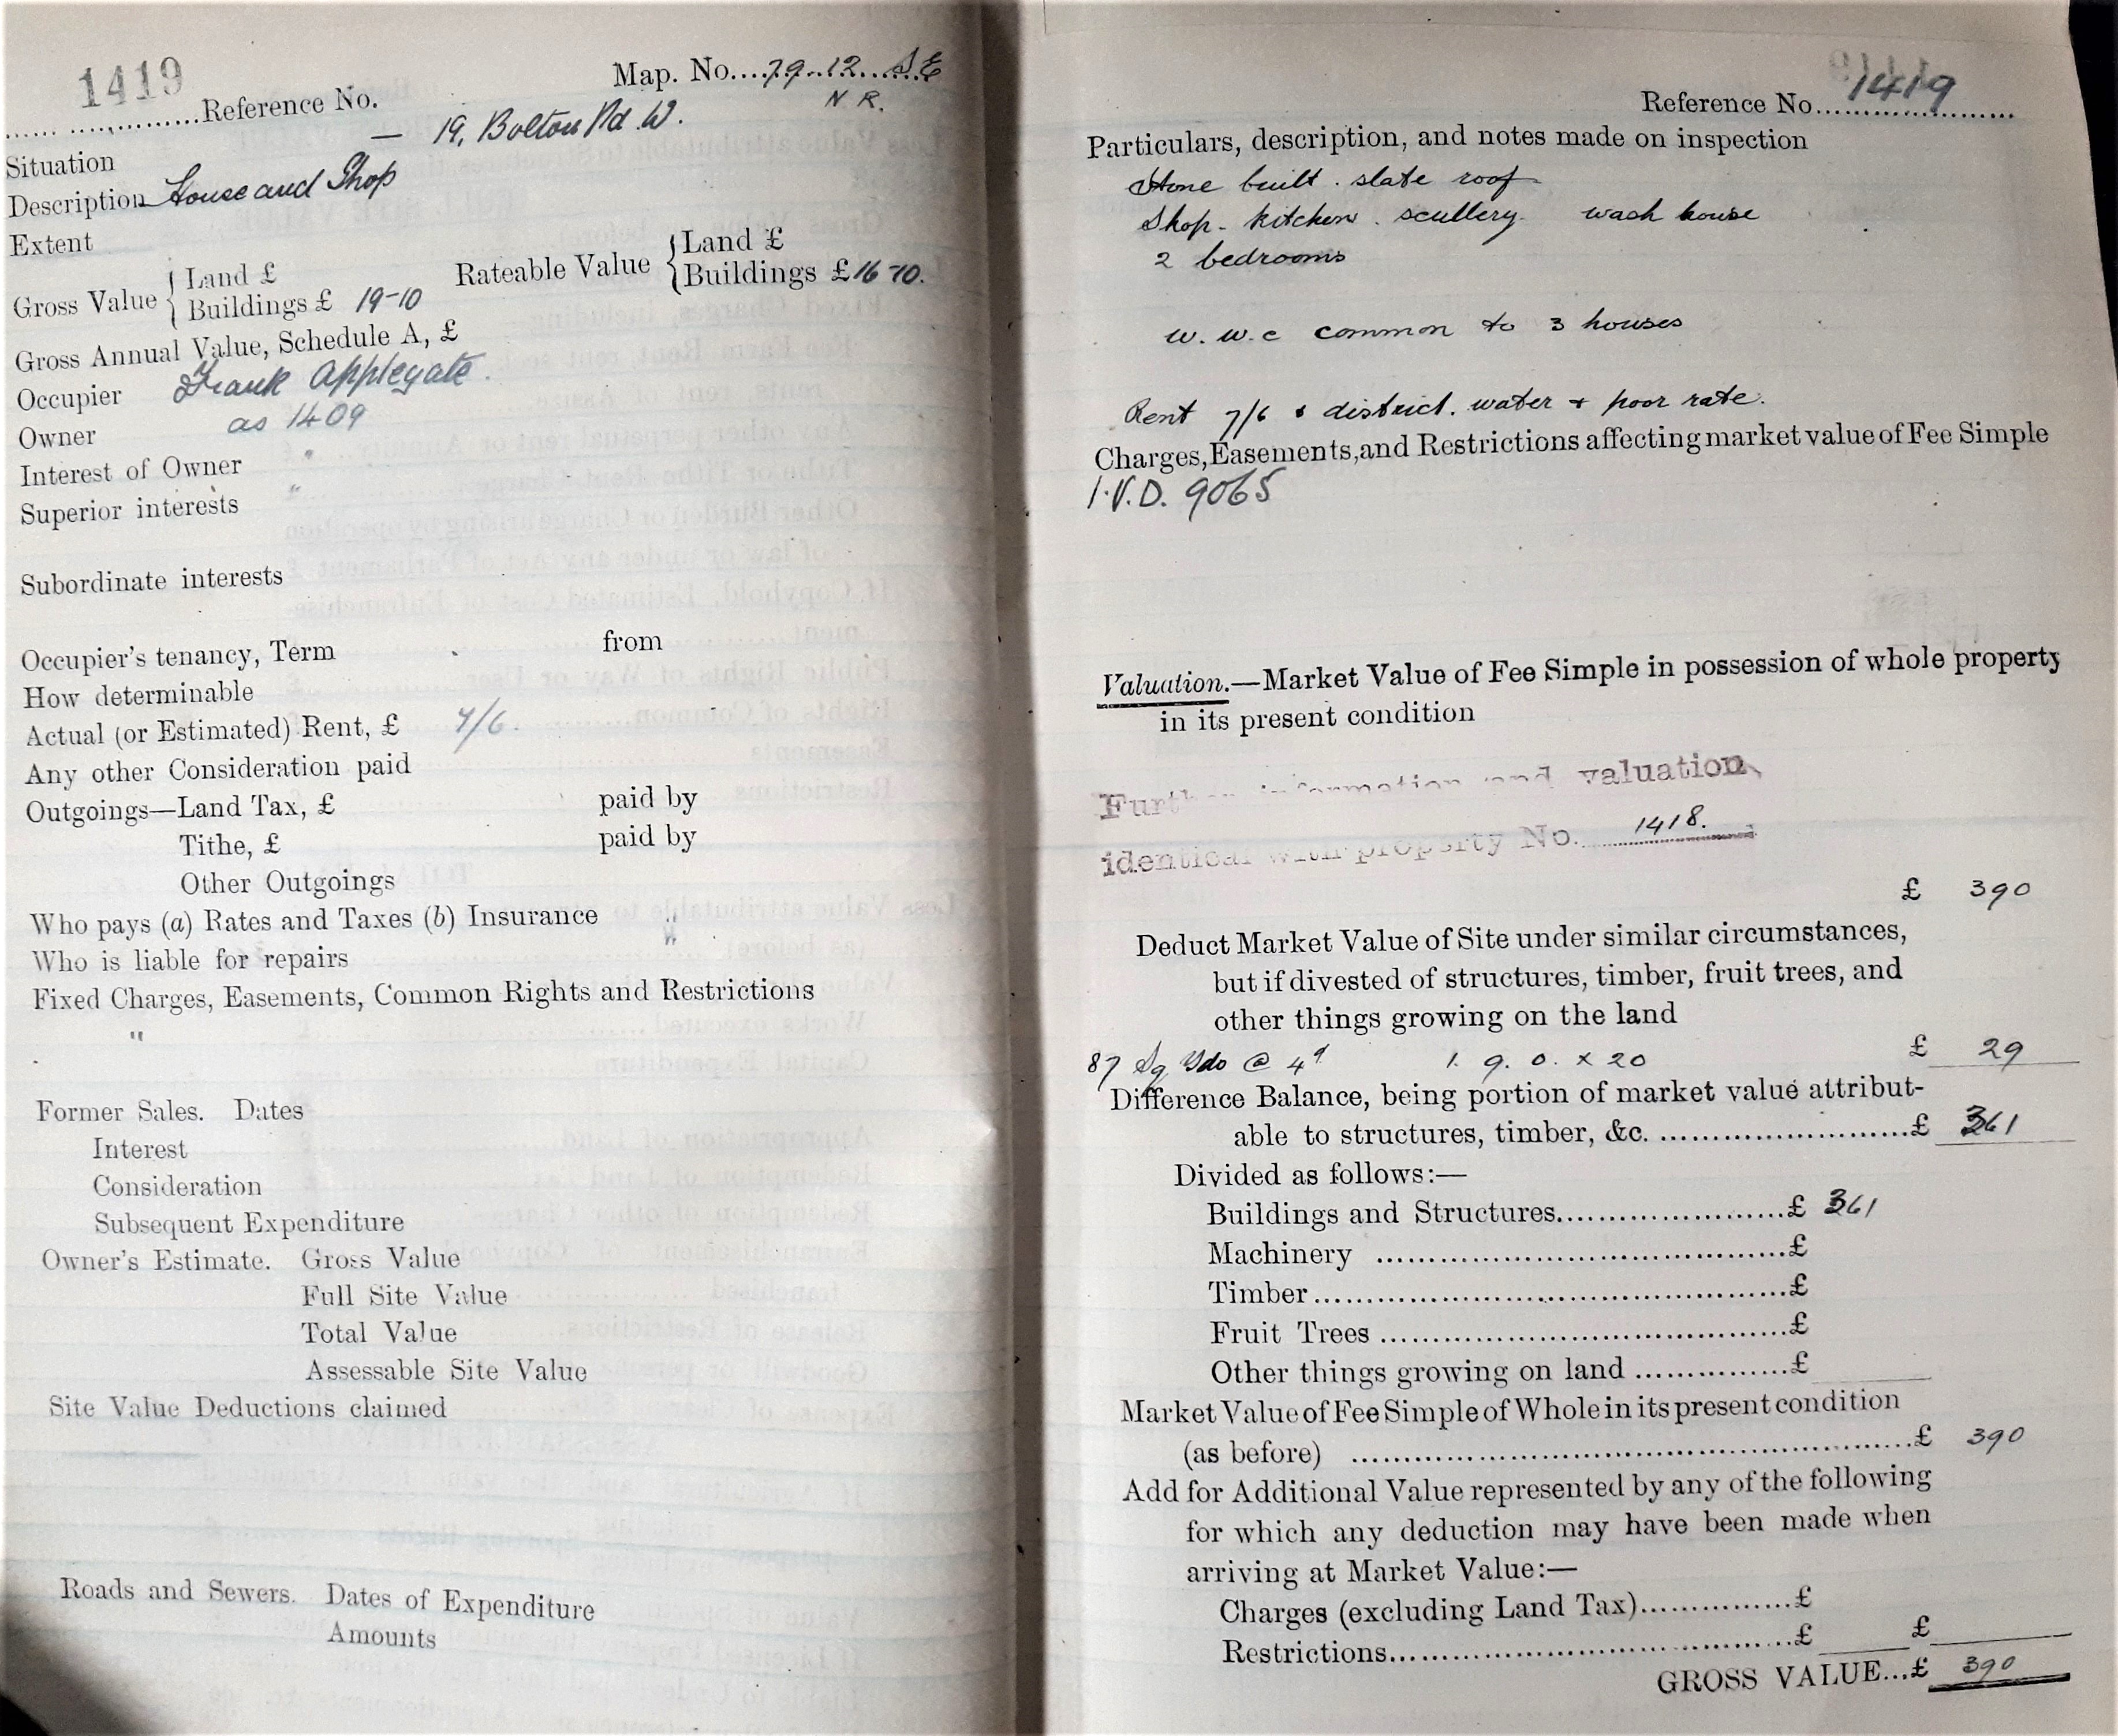 1419
Reference No.
Map. No. 79.12 S E
N R.
Situation — 19, Bolton Rd. W.
Description House and Shop
Extent
Gross Value { Land £
Buildings £ 19-10
Rateable Value { Land £
Buildings £ 16 10.
Gross Annual Value, Schedule A, £
Occupier Frank Applegate.
Owner as 1409
Interest of Owner "
Superior interests "
Subordinate interests
Occupier's tenancy, Term from
How determinable
Actual (or Estimated) Rent, £ 7/6.
Any other Consideration paid
Outgoings—Land Tax, £ paid by
Tithe, £ paid by
Other Outgoings
Who pays (a) Rates and Taxes (b) Insurance "
Who is liable for repairs
Fixed Charges, Easements, Common Rights and Restrictions
"
Former Sales. Dates
Interest
Consideration
Subsequent Expenditure
Owner's Estimate. Gross Value
Full Site Value
Total Value
Assessable Site Value
Site Value Deductions claimed
Roads and Sewers. Dates of Expenditure
Amounts
Reference No. 1419
Particulars, description, and notes made on inspection
Stone built. slate roof
Shop - kitchen. scullery. wash house
2 bedrooms
w. w.c common to 3 houses
Rent 7/6 district. water + poor rate.
Charges, Easements, and Restrictions affecting market value of Fee Simple
I.V.D. 9065
Valuation.—Market Value of Fee Simple in possession of whole property
in its present condition
Further information and valuation
identical with property No. 1418.
£ 390
Deduct Market Value of Site under similar circumstances,
but if divested of structures, timber, fruit trees, and
other things growing on the land
87 Sq Yds @ 4d 1. 9. 0. x 20 £ 29
Difference Balance, being portion of market value attribut-
able to structures, timber, &c. £ 361
Divided as follows:—
Buildings and Structures £ 361
Machinery £
Timber £
Fruit Trees £
Other things growing on land £
Market Value of Fee Simple of Whole in its present condition
(as before) £ 390
Add for Additional Value represented by any of the following
for which any deduction may have been made when
arriving at Market Value:—
Charges (excluding Land Tax) £
Restrictions £ £
GROSS VALUE...£ 390